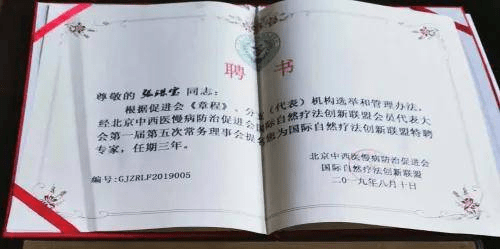 聘 书
尊敬的 张洪宝 同志：
根据促进会《章程》、分支（代表）机构选举和管理办法，
经北京中西医慢病防治促进会国际自然疗法创新联盟会员代表大
会第一届第五次常务理事会提名您为国际自然疗法创新联盟特聘
专家，任期三年。
北京中西医慢病防治促进会
国际自然疗法创新联盟
编号：GJZRLF2019005
二〇一九年八月十日